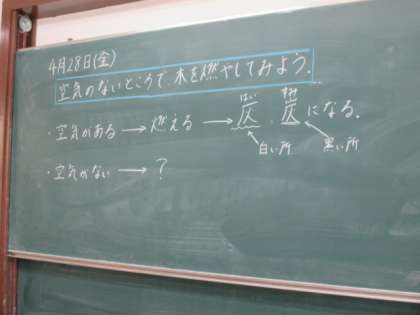 4月28日(金)
空気のないところで、木を燃やしてみよう。
はい すみ
・空気がある→燃える→灰、炭になる。
白い所 黒い所
・空気がない→?